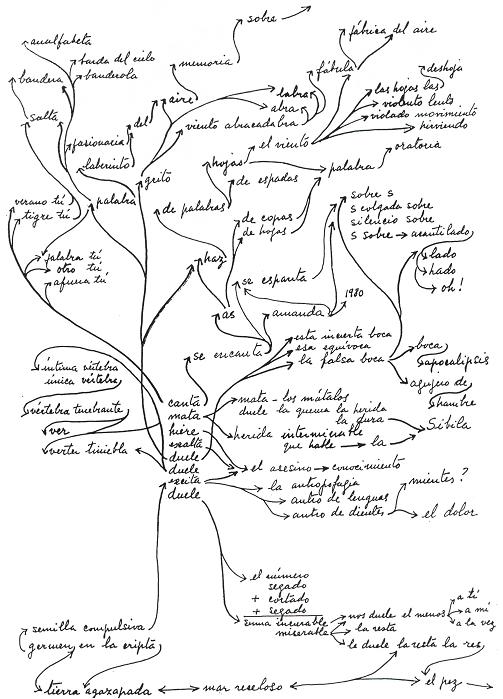 sobre
fábrica del aire
analfabeta
banda del cielo
bandera
banderola
memoria
fábula
deshoja
labra
las hojas las
aire
abra
violento lento
salta
del
viento abracadabra
violado movimiento
hirviendo
pasionaria
el viento
oratoria
laberinto
hojas
palabra
grito
de espadas
verano tú
palabra
sobre s
tigre tú
de palabras
de copas
s colgada sobre
de hojas
silencio sobre
s sobre acantilado
palabra tú
haz
lado
otro tú
hado
afuera tú
se espanta
oh!
1980
as
amanda
esta incierta boca
esa equívoca
boca
se encanta
la falsa boca
íntima vértebra
apocalipsis
única vértebra
agujero de
canta
mata - los mátalos
hambre
vértebra tuneante
mata
duele la quema la herida
la dura
Sibila
ver
hiere
herida interminable
exalta
que hable
la
verter tiniebla
duele
duele
el asesino
conocimiento
excita
la antropofagia
mientes?
duele
antro de lenguas
antro de dientes
el dolor
el número
segado
+ cortado
+ segado
a tí
suma incurable
nos duele el menos
a mi
semilla compulsiva
miserable
la resta
a la vez
germen en la cripta
le duele la resta la res
tierra agazapada
mar receloso
el pez